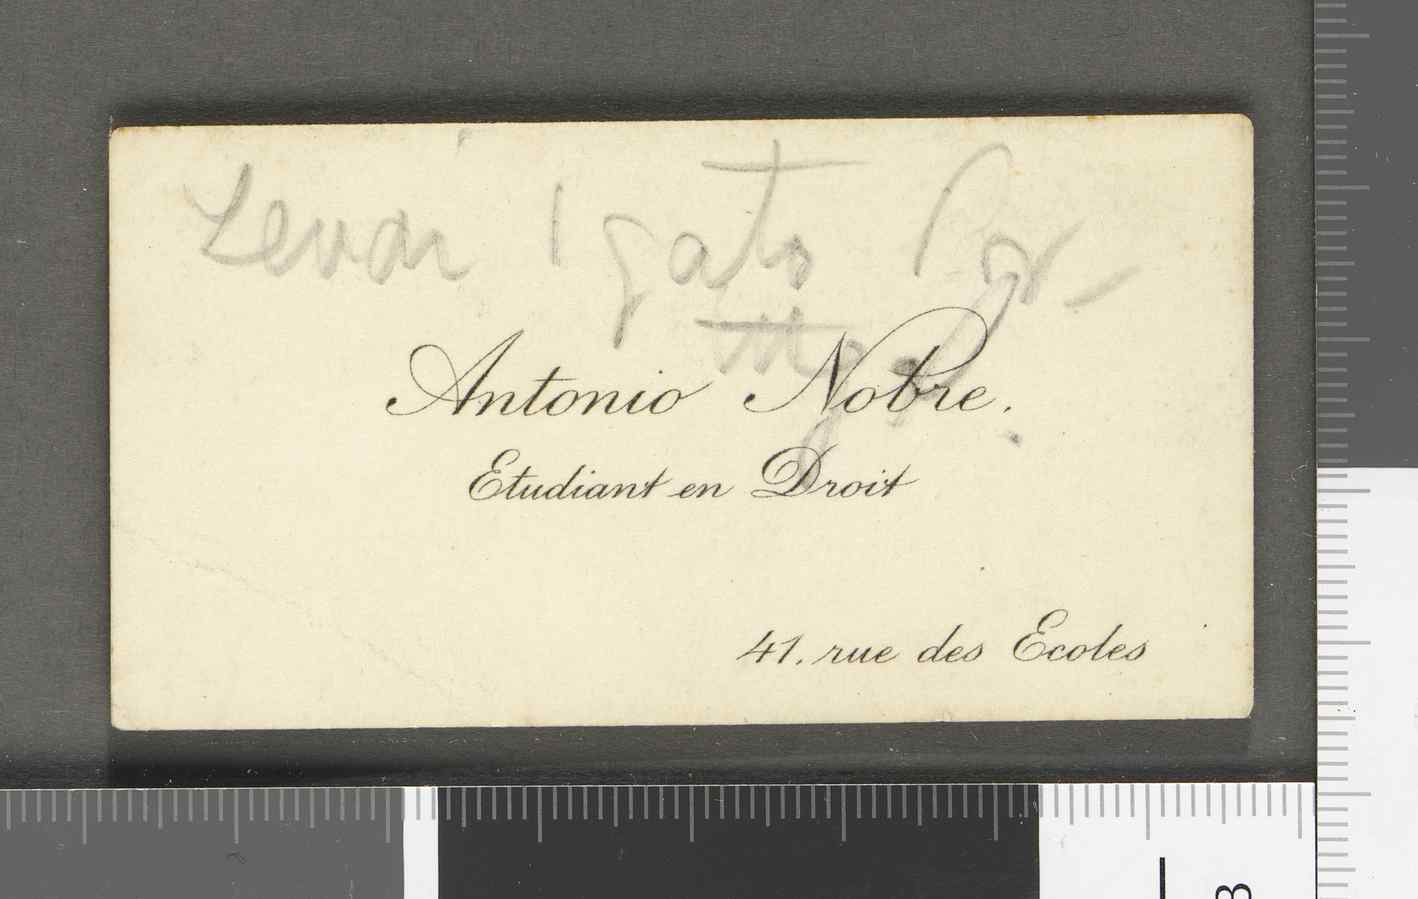 Levai 1 gato por
Antonio Nobre.
Etudiant en Droit
41. rue des Ecoles
8